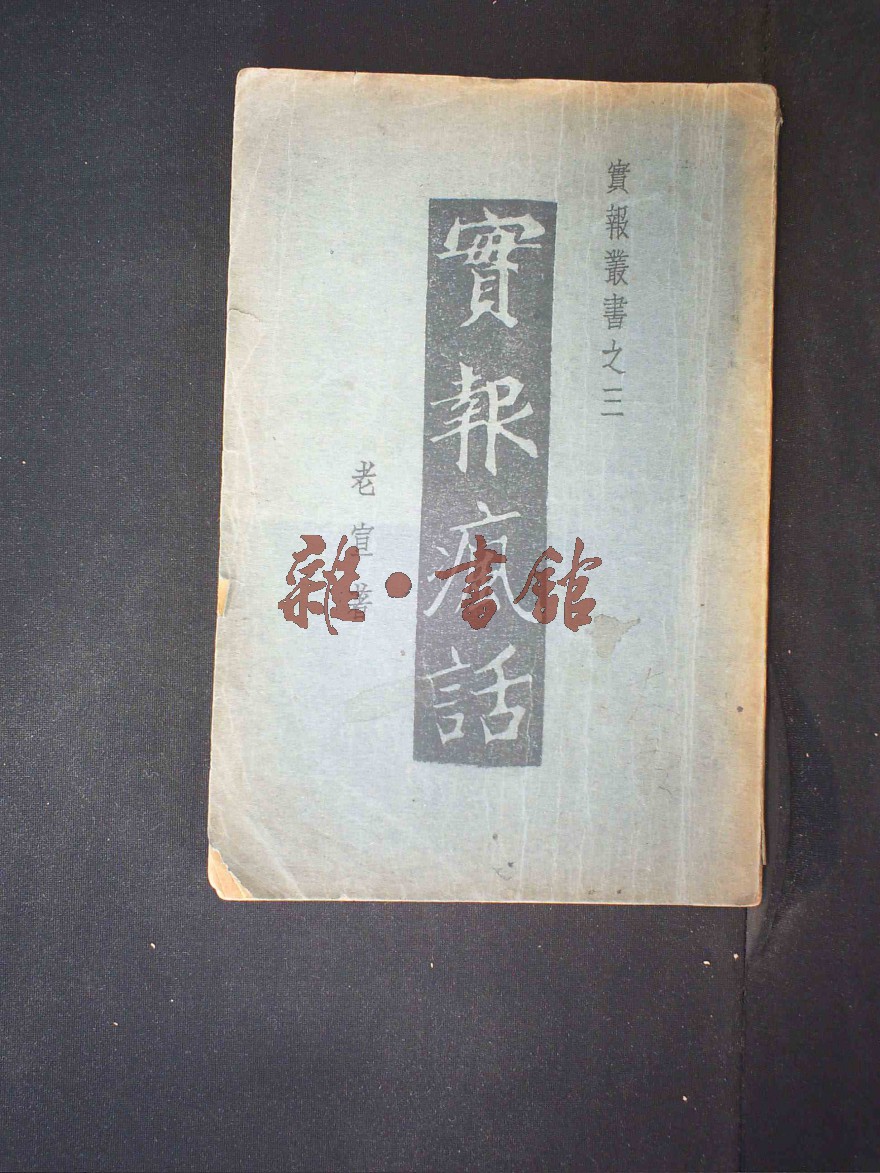 實報叢書之三
實報瘋話
老宣著
雜·書館